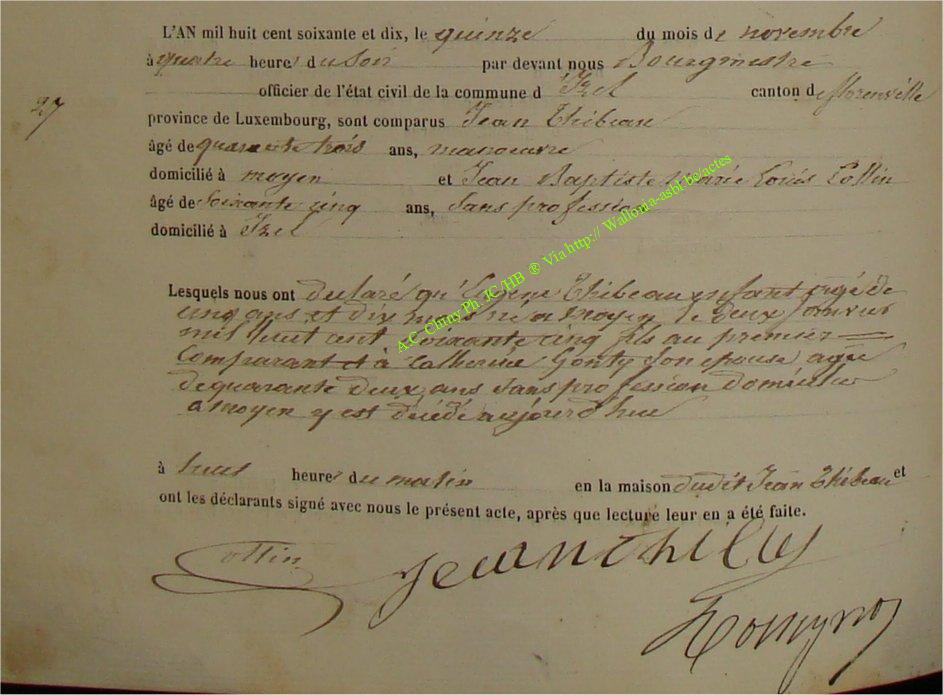 L'AN mil huit cent soixante et dix, le quinze du mois de novembre
à quatre heure du Soir par devant nous Bourgmestre
officier de l'état civil de la commune d'Izel canton de florenville
27
province de Luxembourg, sont comparus Jean Thibeau
âgé de quarante trois ans, manoeuvre
domicilié à moyen et Jean Baptiste Marie Louis Collin
âgé de Soixante cinq ans, Sans profession
domicilié à Izel
A.C. Chiny Ph. JC/HB ® Via http:// Wallonia-asbl-be/actes
Lesquels nous ont déclaré qu'Eugene Thibeau enfant agé de
cinq ans et dix mois né a Moyen le deux janvier
mil huit cent soixante cinq fils au premier
Comparant et à Catherine Gonty Son epouse agée
de quarante deux ans Sans profession domiciliée
a moyen y est décédé aujourd'hui
à huit heure du matin en la maison dudit Jean Thibeau et
ont les déclarants signé avec nous le présent acte, après que lecture leur en a été faite.
Collin Jean